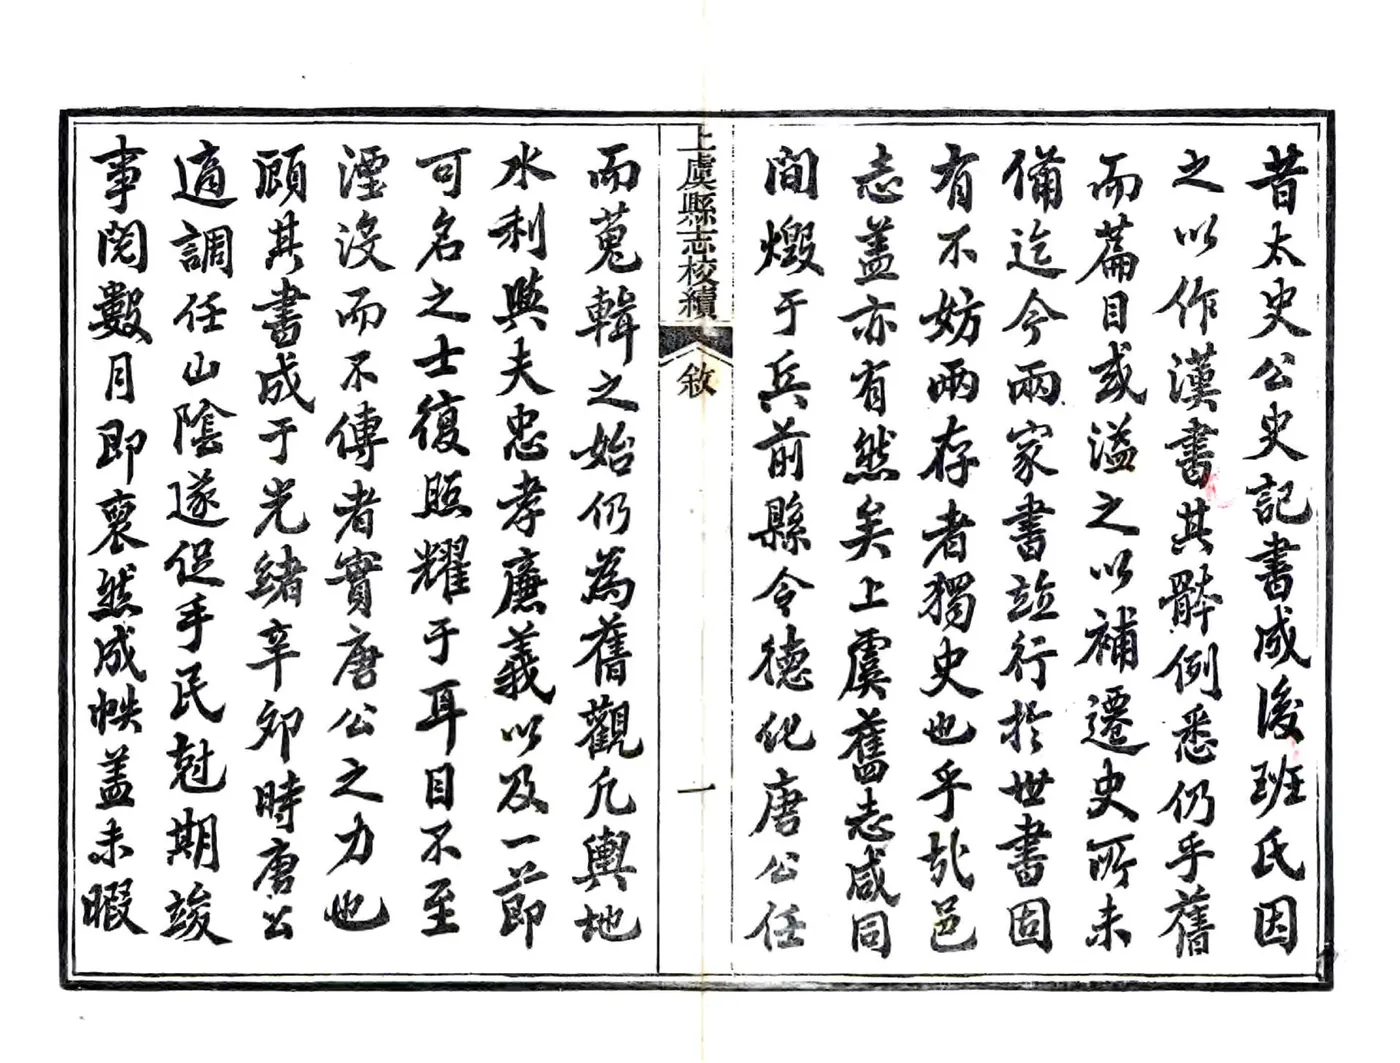 昔太史公史記書成後班氏因
之以作漢書其骵例悉仍乎舊
而篇目或溢之以補遷史所未
備迄今兩家書竝行於世書固
有不妨兩存者獨史也乎哉邑
志盖亦有然矣上虞舊志咸同
間燬于兵前縣令德化唐公任
上虞縣志校續
敘
一
而蒐輯之始仍為舊觀凡輿地
水利與夫忠孝廉義以及一節
可名之士復照耀于耳目不至
湮沒而不傳者實唐公之力也
顧其書成于光緒辛卯時唐公
適調任山陰遂促手民尅期竣
事閱數月即裒然成帙盖未暇